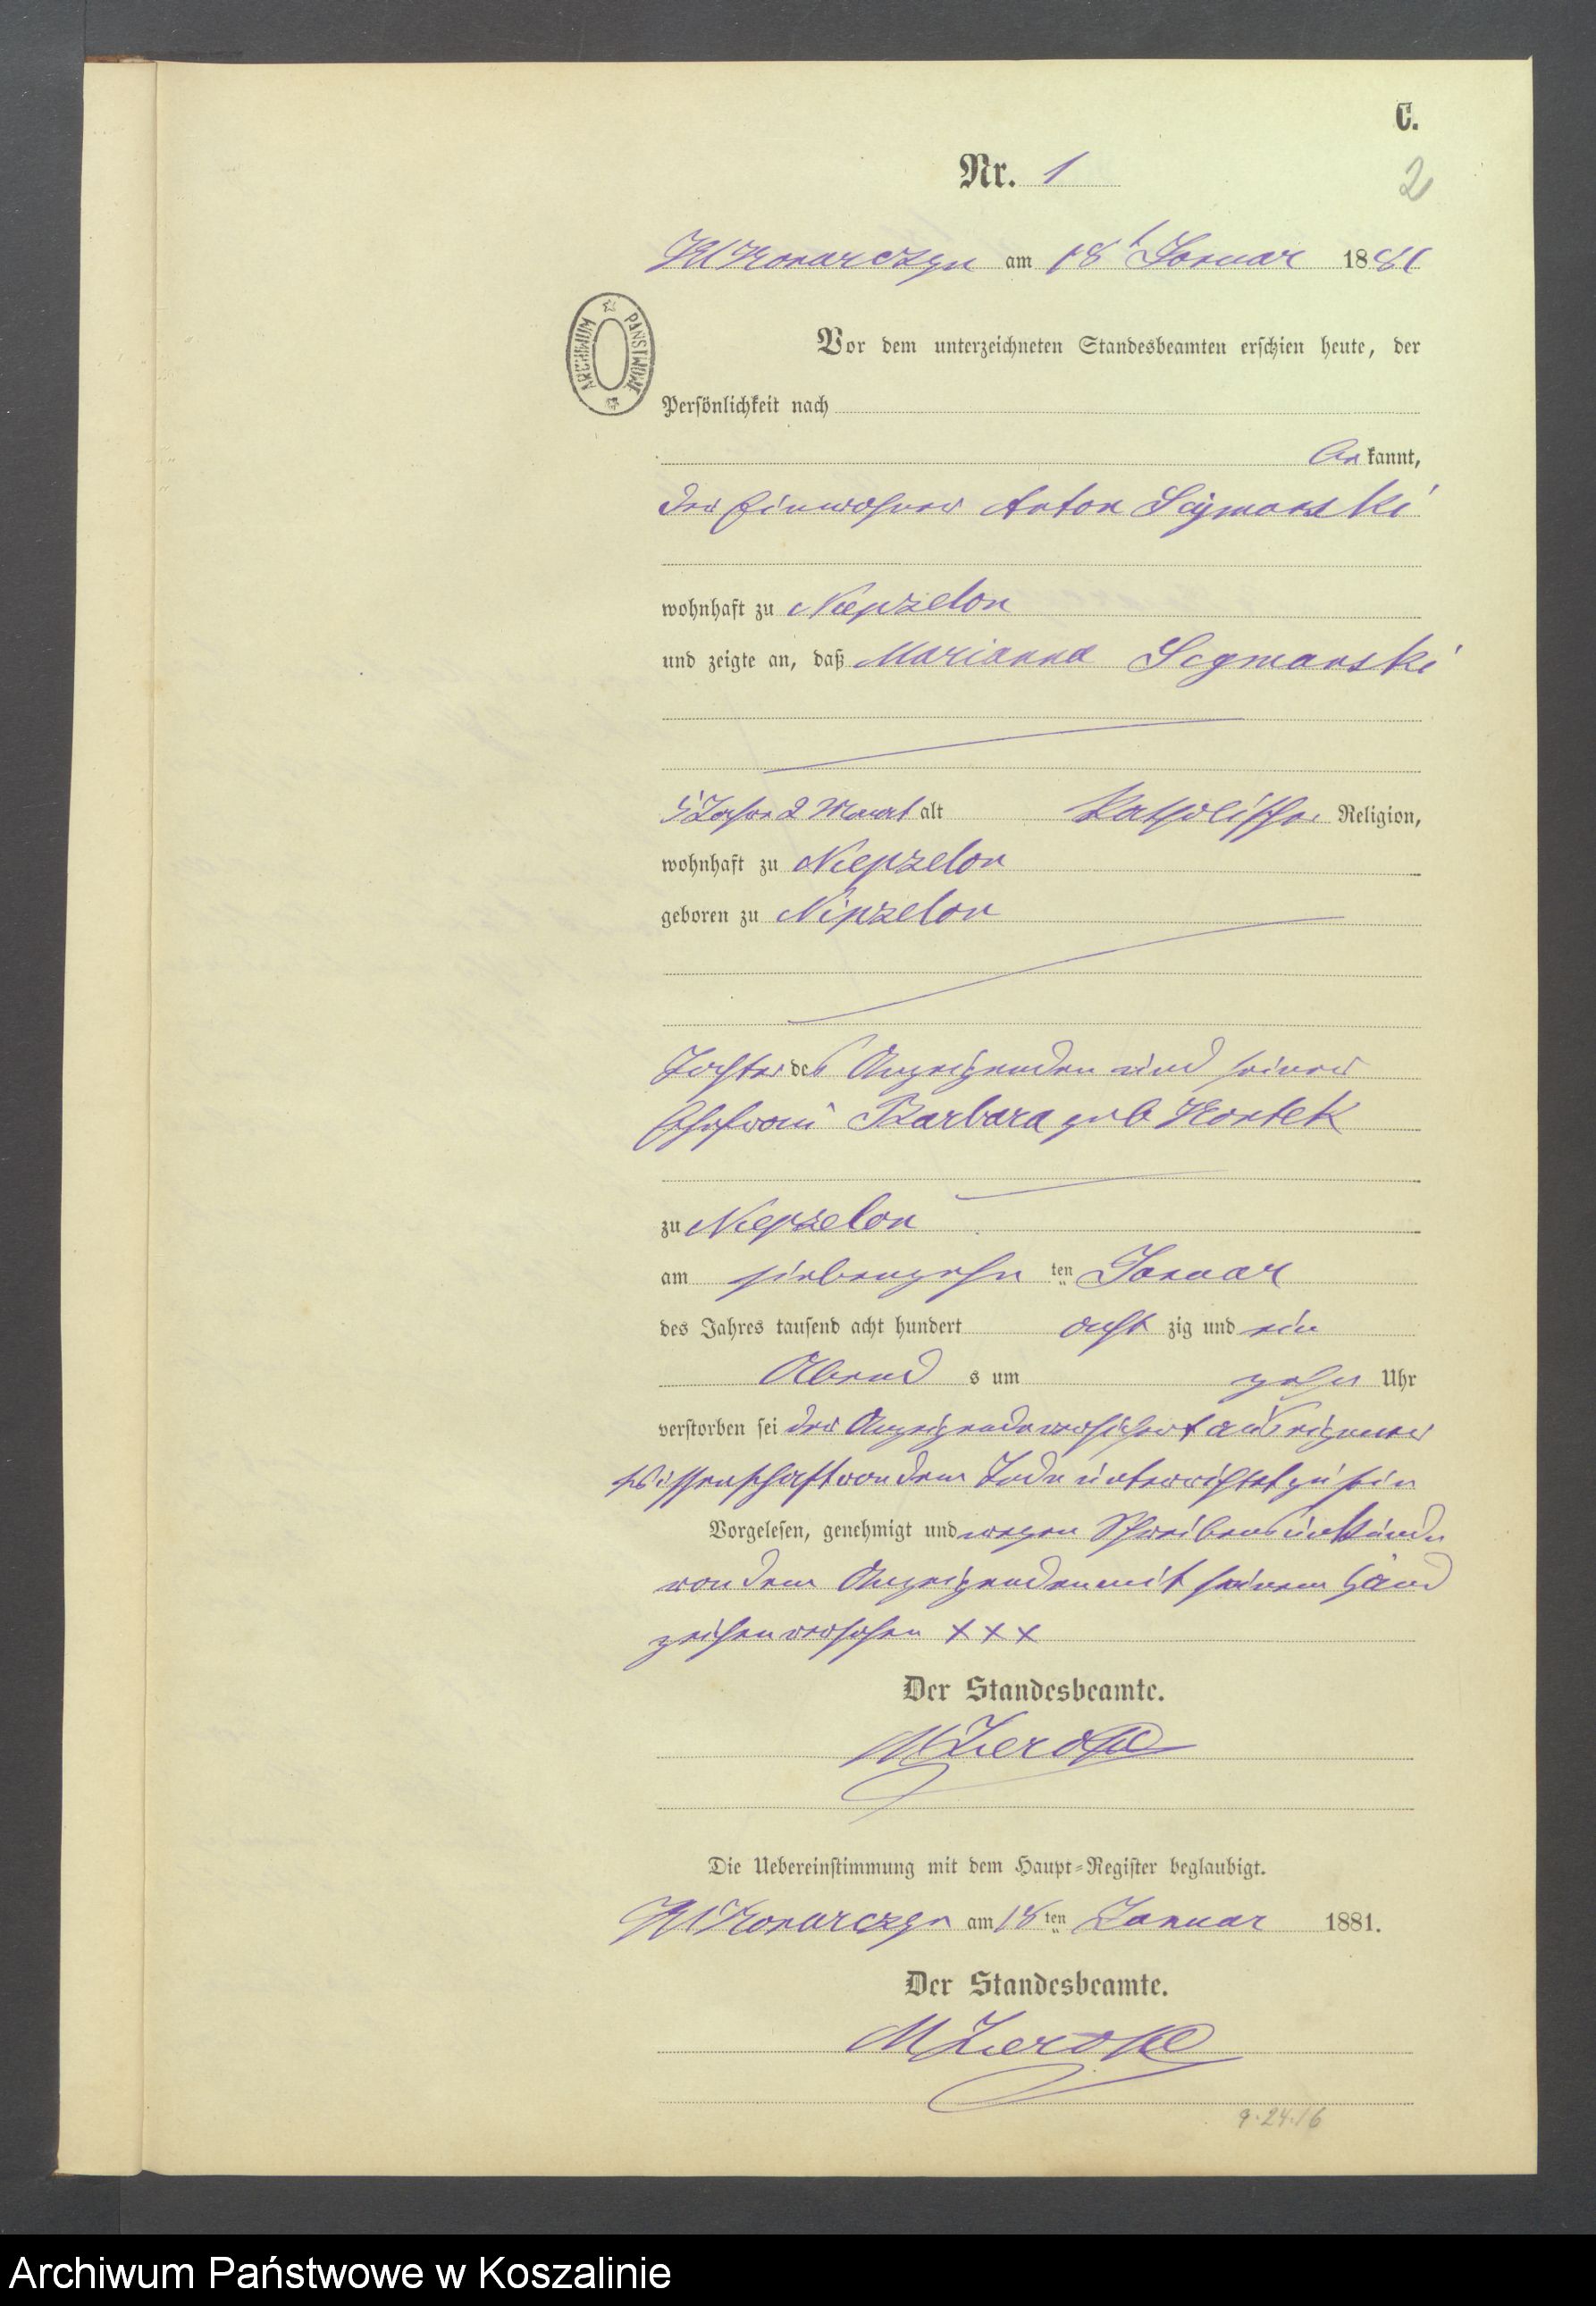 C.
Nr. 1
2
Kl Konarczyn am 18t Januar 1881
ARCHIWUM PAŃSTWOWE
Vor dem unterzeichneten Standesbeamten erschien heute, der
Persönlichkeit nach
be kannt,
der Einwohner Anton Scymanski
wohnhaft zu Niepszelon
und zeigte an, daß Marianna Scymanski
Jahre 2 Monat alt Katholischer Religion,
wohnhaft zu Niepszelon
geboren zu Nipszelon
Tochter des Anzeigenden und seiner
Ehefrau Barbara geb
zu Niepszelon
am siebenzehn ten Januar
des Jahres tausend acht hundert acht zig und ein
Abend s um zehn Uhr
verstorben sei der Anzeigende versichert aus eigener
Wissenschaft von dem Tode unterrichtet zu sein
Vorgelesen, genehmigt und wegen Schreibensunkunde
von dem Anzeigenden mit seinem Hand
zeichen versehen XXX
Der Standesbeamte.
Die Uebereinstimmung mit dem Haupt-Register beglaubigt.
Kl Konarczyn am 18 ten Januar 1881.
Der Standesbeamte.
9.24.16
Archiwum Państwowe w Koszalinie